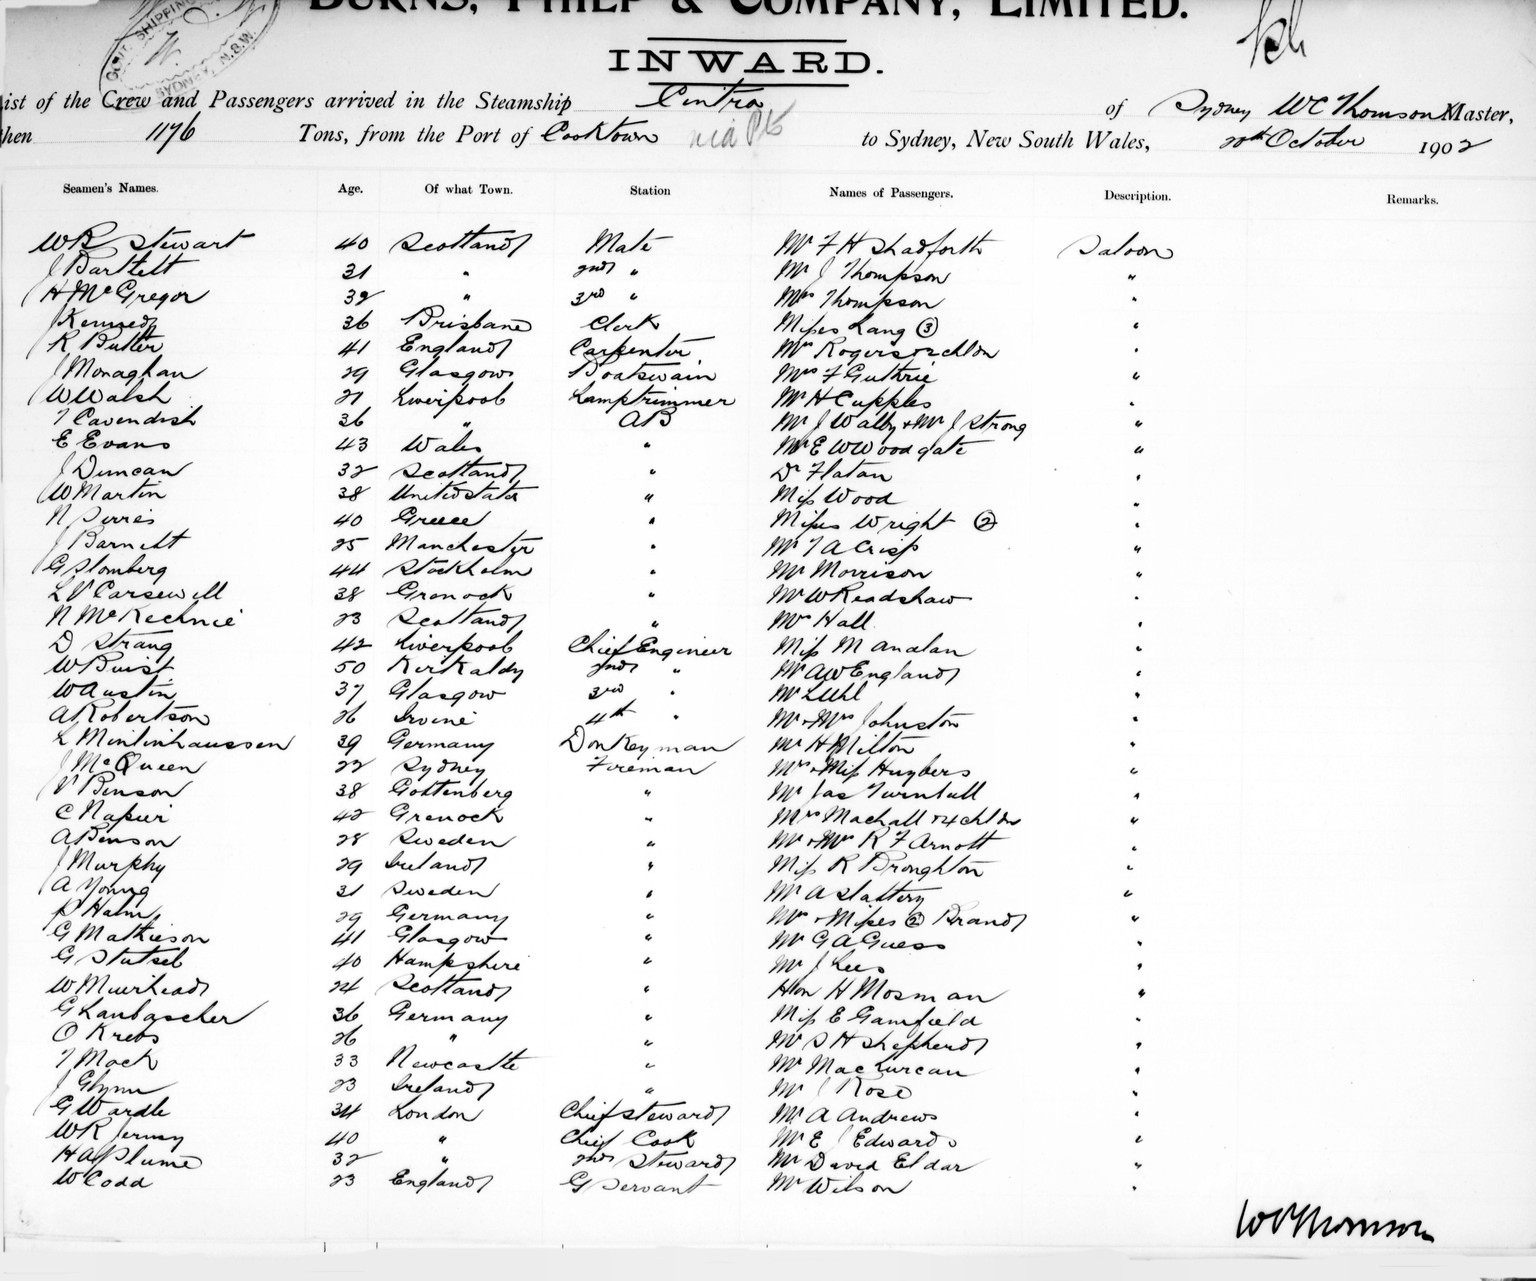 BURNS, PHILP & COMPANY, LIMITED.
INWARD.
GOVT SHIPPING
SYDNEY, N.S.W.
ist of the Crew and Passengers arrived in the Steamship Cintra of Sydney W C Thomson Master,
hen 1176 Tons, from the Port of Cooktown via Pts to Sydney, New South Wales, 20th October 1902
Seamen's Names. Age. Of what Town. Station Names of Passengers. Description. Remarks.
W B Stewart 40 Scotland Mate Mr F H Shadforth Saloon
J Bartlett 31 " 2nd " Mr J Thompson "
H McGregor 32 " 3rd " Mrs Thompson "
J Kennedy 36 Brisbane Clerk Misses Lang (3) "
R Butler 41 England Carpenter Mrs Rogers & 2 chldn "
J Monaghan 29 Glasgow Boatswain Mrs F Guthrie "
W Walsh 21 Liverpool Lamptrimmer Mr H Cupples "
T Cavendish 36 " AB Mr J Walby & Mr J Strong "
E Evans 43 Wales " Mr E W Woodgate "
J Duncan 32 Scotland " Dr Flatau "
W Martin 38 United States " Miss Wood "
N Serres 40 Greece " Misses Wright (2) "
J Barnett 25 Manchester " Mr T A Crisp "
G Slomberg 44 Stockholm " Mr Morrison "
L V Carsewell 38 Grenock " Mr W Readshaw "
N McKechnie 23 Scotland " Mrs Hall "
D Strang 42 Liverpool Chief Engineer Miss M Anglan "
W Buist 50 Kirkaldy 2nd " Mr A W England "
W Austin 37 Glasgow 3rd " Mr L Uhl "
A Robertson 26 Irvine 4th " Mr & Mrs Johnston "
L Mintinhaussen 39 Germany Donkeyman Mr H Milton "
J McQueen 22 Sydney Fireman Mrs & Miss Huybers "
V Benson 38 Gottenberg " Mr Jas Turnbull "
C Napier 42 Grenock " Mrs Machall & 4 chldn "
A Benson 28 Sweden " Mr & Mrs R F Arnott "
J Murphy 29 Ireland " Miss R Broughton "
A Young 31 Sweden " Mr A Slattery "
P Halm 29 Germany " Mrs & Misses (2) Brand "
G Mathieson 41 Glasgow " Mr G A Guess "
G Stutsel 40 Hampshire " Mr J Lees "
W Muirhead 24 Scotland " Hon H Mosman "
G Laubascher 36 Germany " Miss E Gamfield "
O Krebs 26 " " Mr S H Shepherd "
T Mack 33 Newcastle " Mr Maclurcan "
J Glynn 23 Ireland " Mr J Rose "
G Wardle 34 London Chief Steward Mr A Andrews "
W R Jermy 40 " Chief Cook Mr E J Edwards "
H A Plume 32 " 2nd Steward Mr David Eldar "
W Codd 23 England G Servant Mr Wilson "
W C Thomson